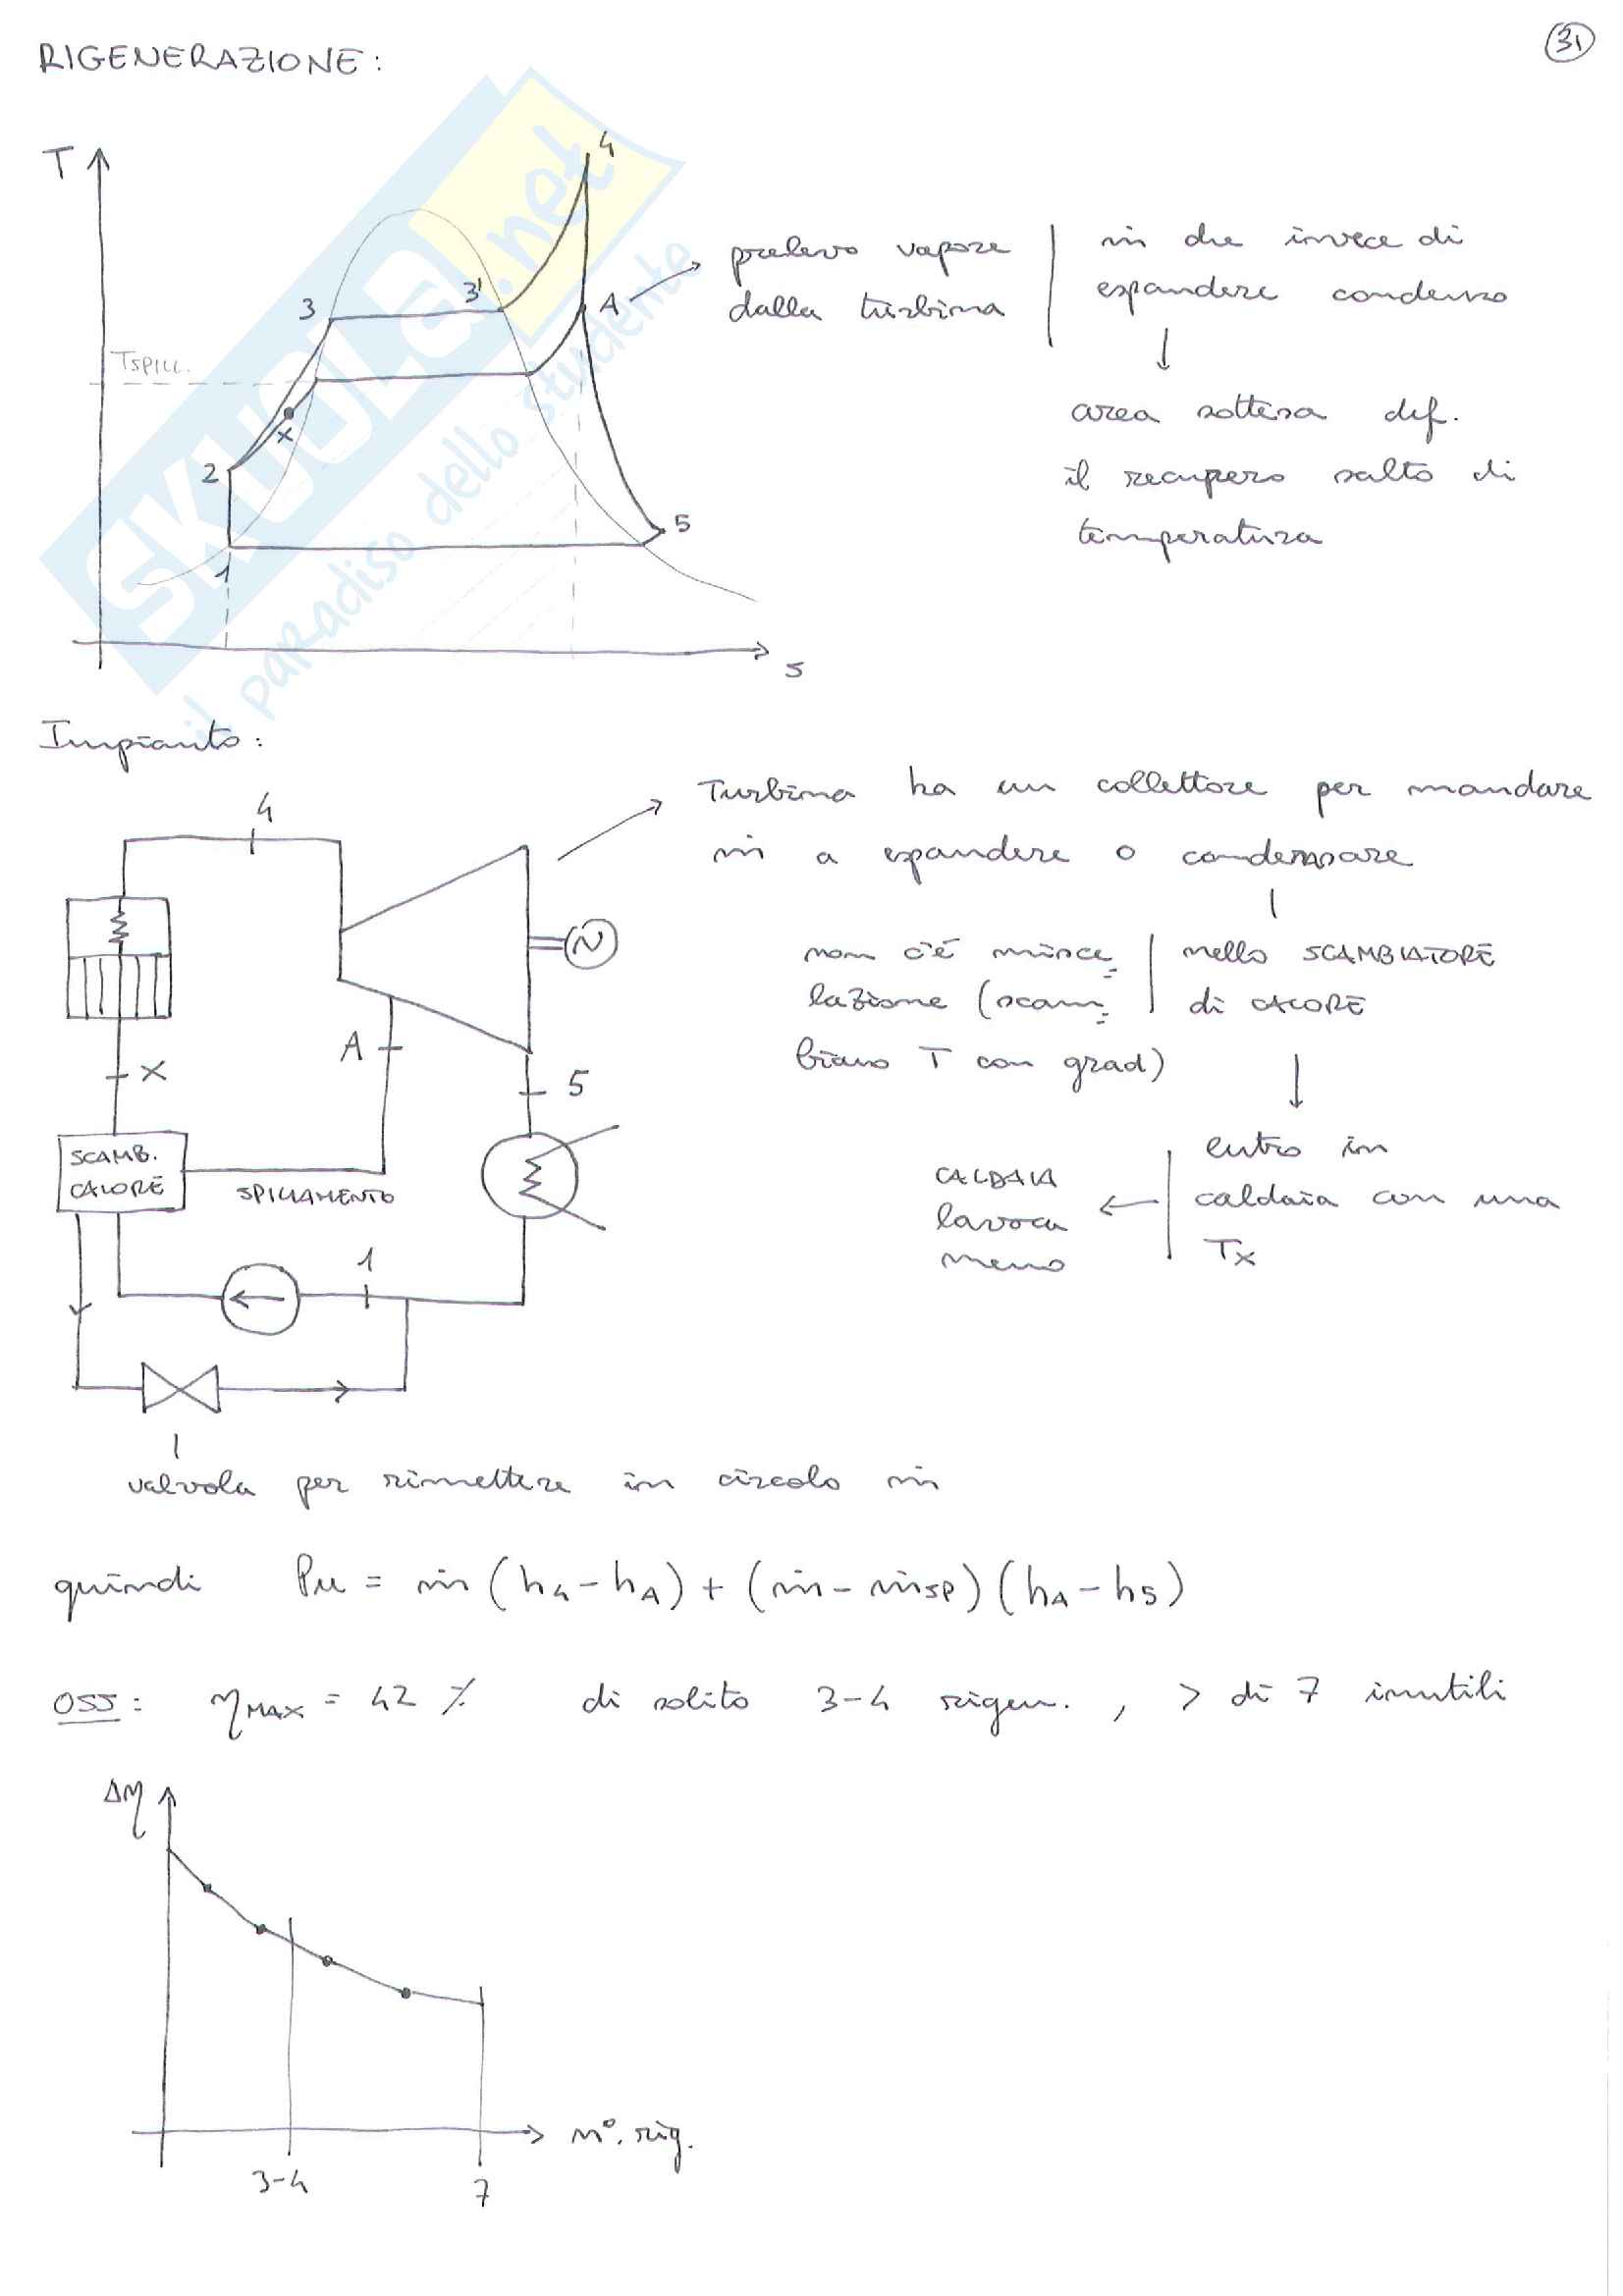 31
RIGENERAZIONE:
T
4
3
3'
A
TSPILL.
x
2
5
1
s
prelevo vapore
dalla turbina
ṁ che invece di
espandere condenso
area sottesa def.
il recupero salto di
temperatura
SKUOLA.net
il paradiso dello studente
Impianto:
4
Turbina ha un collettore per mandare
ṁ a espandere o condensare
N
non c'è misce
lazione (scam
biano T con grad)
nello SCAMBIATORE
di CALORE
A
x
5
SCAMB.
CALORE
SPILLAMENTO
entro in
caldaia con una
Tx
CALDAIA
lavora
meno
1
valvola per rimettere in circolo ṁ
quindi Pu = ṁ (h4 - hA) + (ṁ - ṁsp) (hA - h5)
OSS: ηMAX = 42 % di solito 3-4 rigen. , > di 7 inutili
Δη
n°. rig.
3-4
7